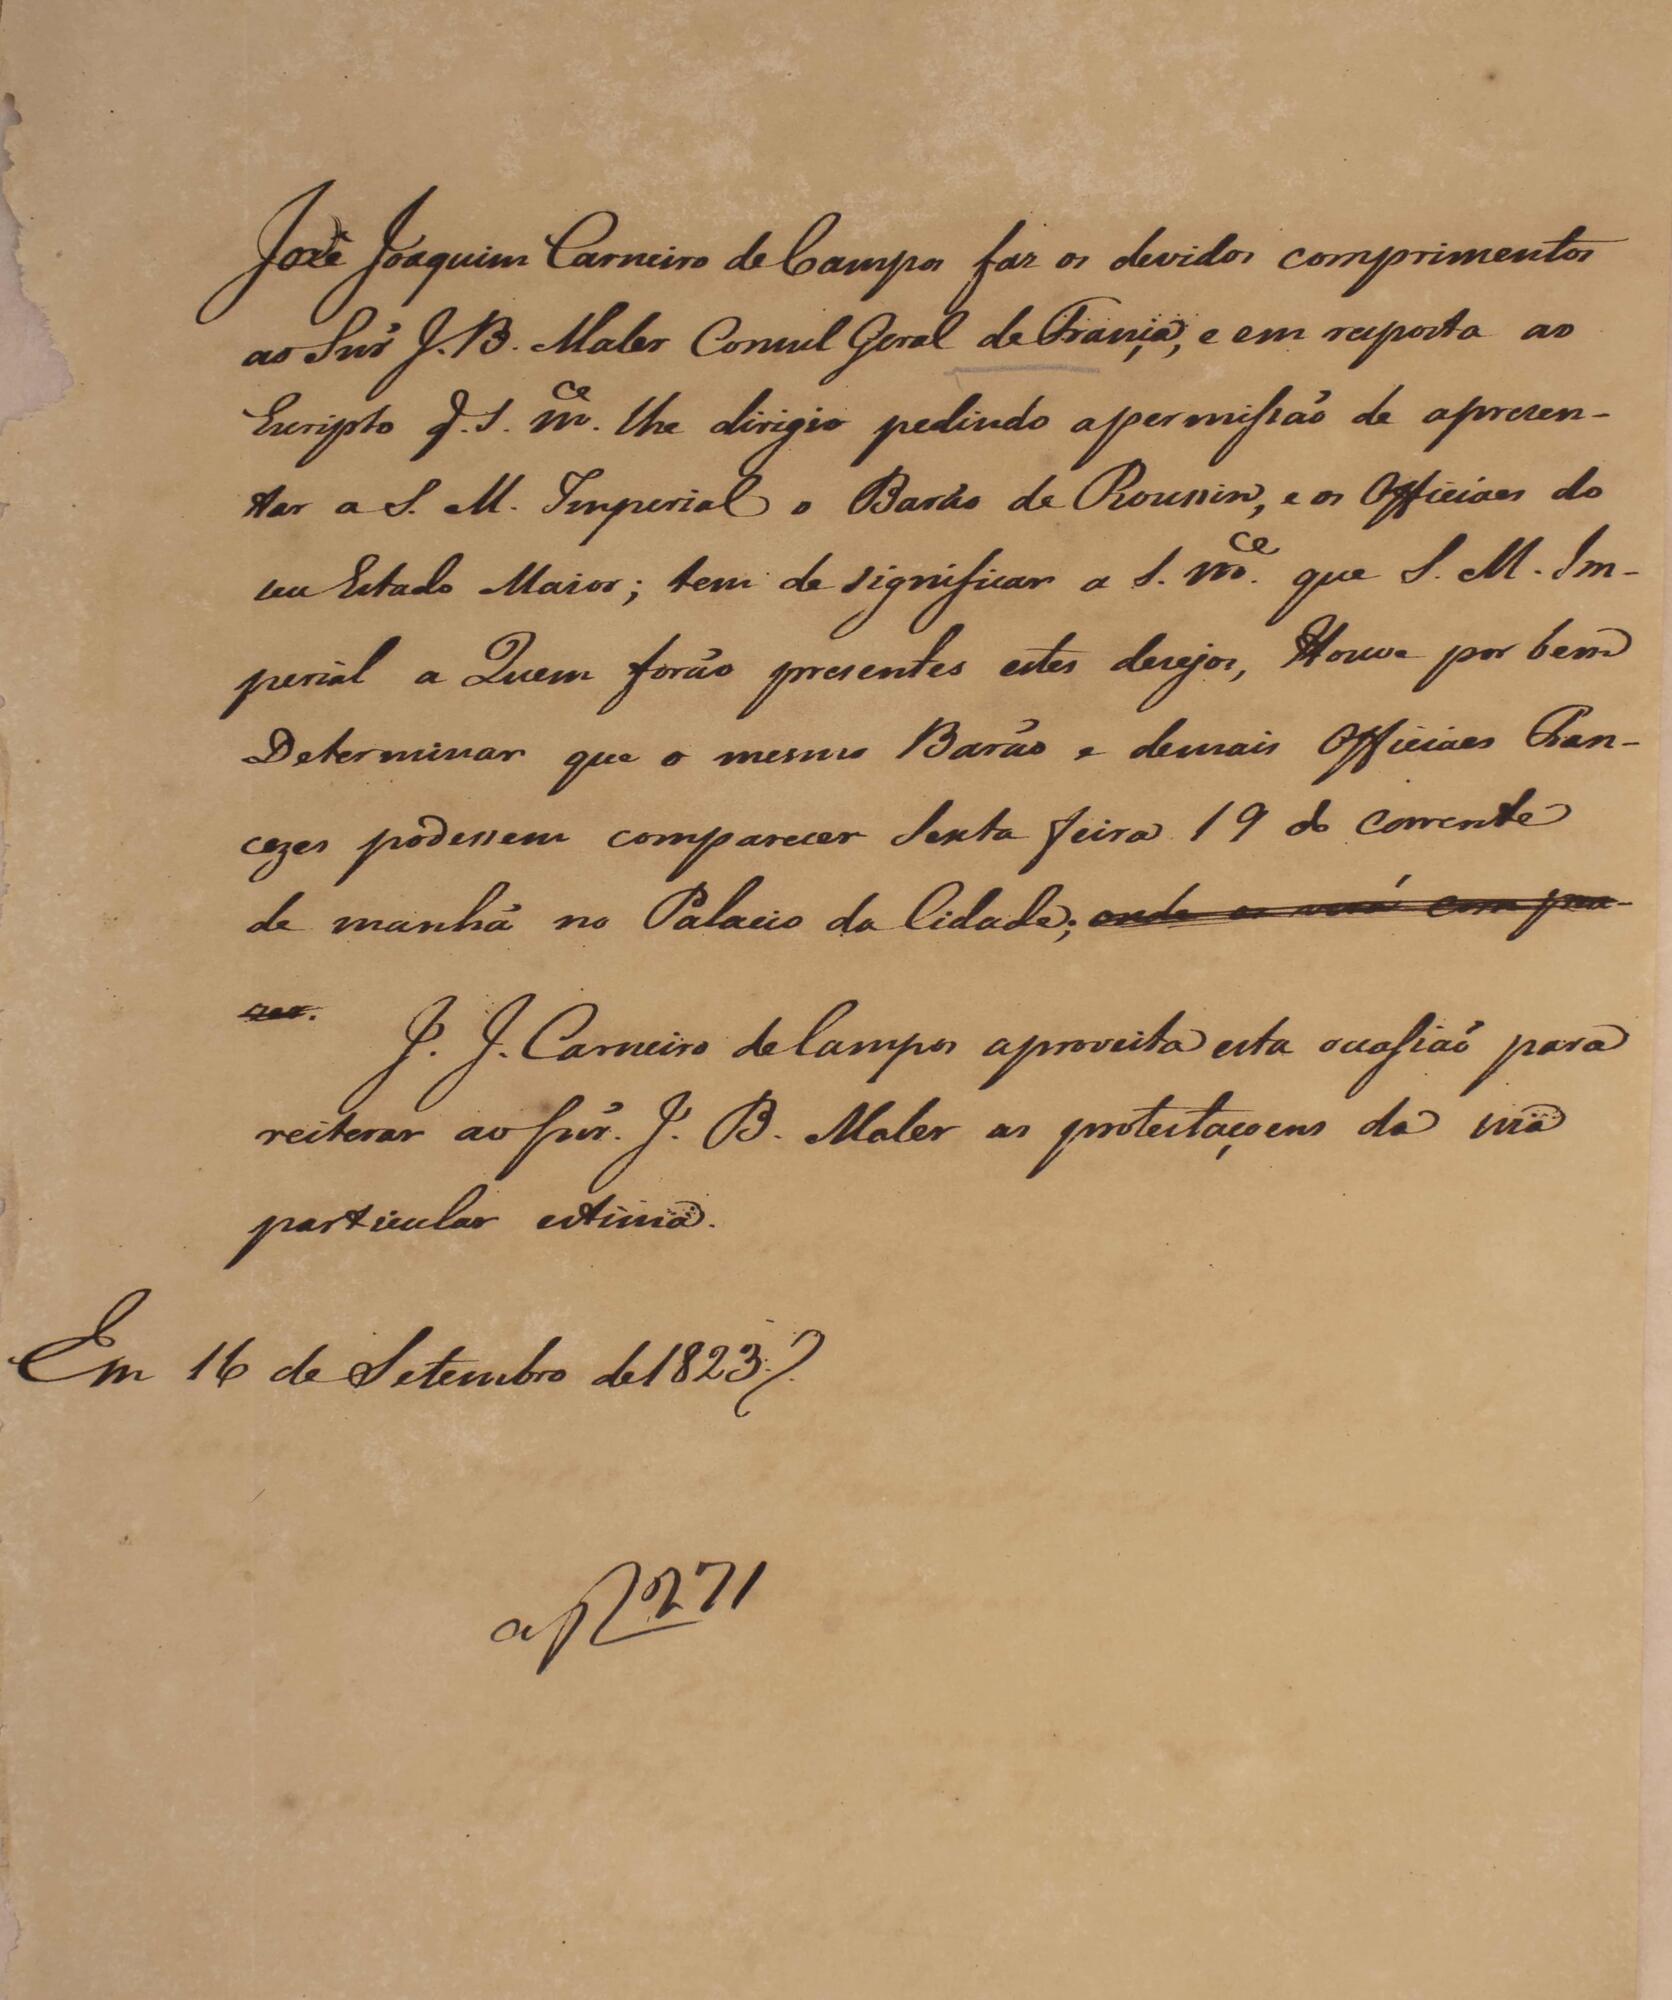 José Joaquim Carneiro de Campos faz os devidos comprimentos
ao Snr̃ J. B. Maler Consul Geral de França, e em resposta ao
Escripto q̃. S. m.ce lhe dirigio pedindo a permissão de apresen-
tar a S. M. Imperial o Barão de Roussin, e os Officiaes do
seu Estado Maior; tem de significar a S. m.ce que S. M. Im-
perial a Quem forão presentes estes desejos, Houve por bem
Determinar que o mesmo Barão e demais Officiaes Fran-
cezes podessem comparecer Sexta feira 19 do corrente
de manhã no Palacio da Cidade; onde os verá com pra-
zer.
J. J. Carneiro de Campos aproveita esta occasião para
reiterar ao Snr̃. J. B. Maler as protestaçoens da sua
particular estima.
Em 16 de Setembro de 1823.
271